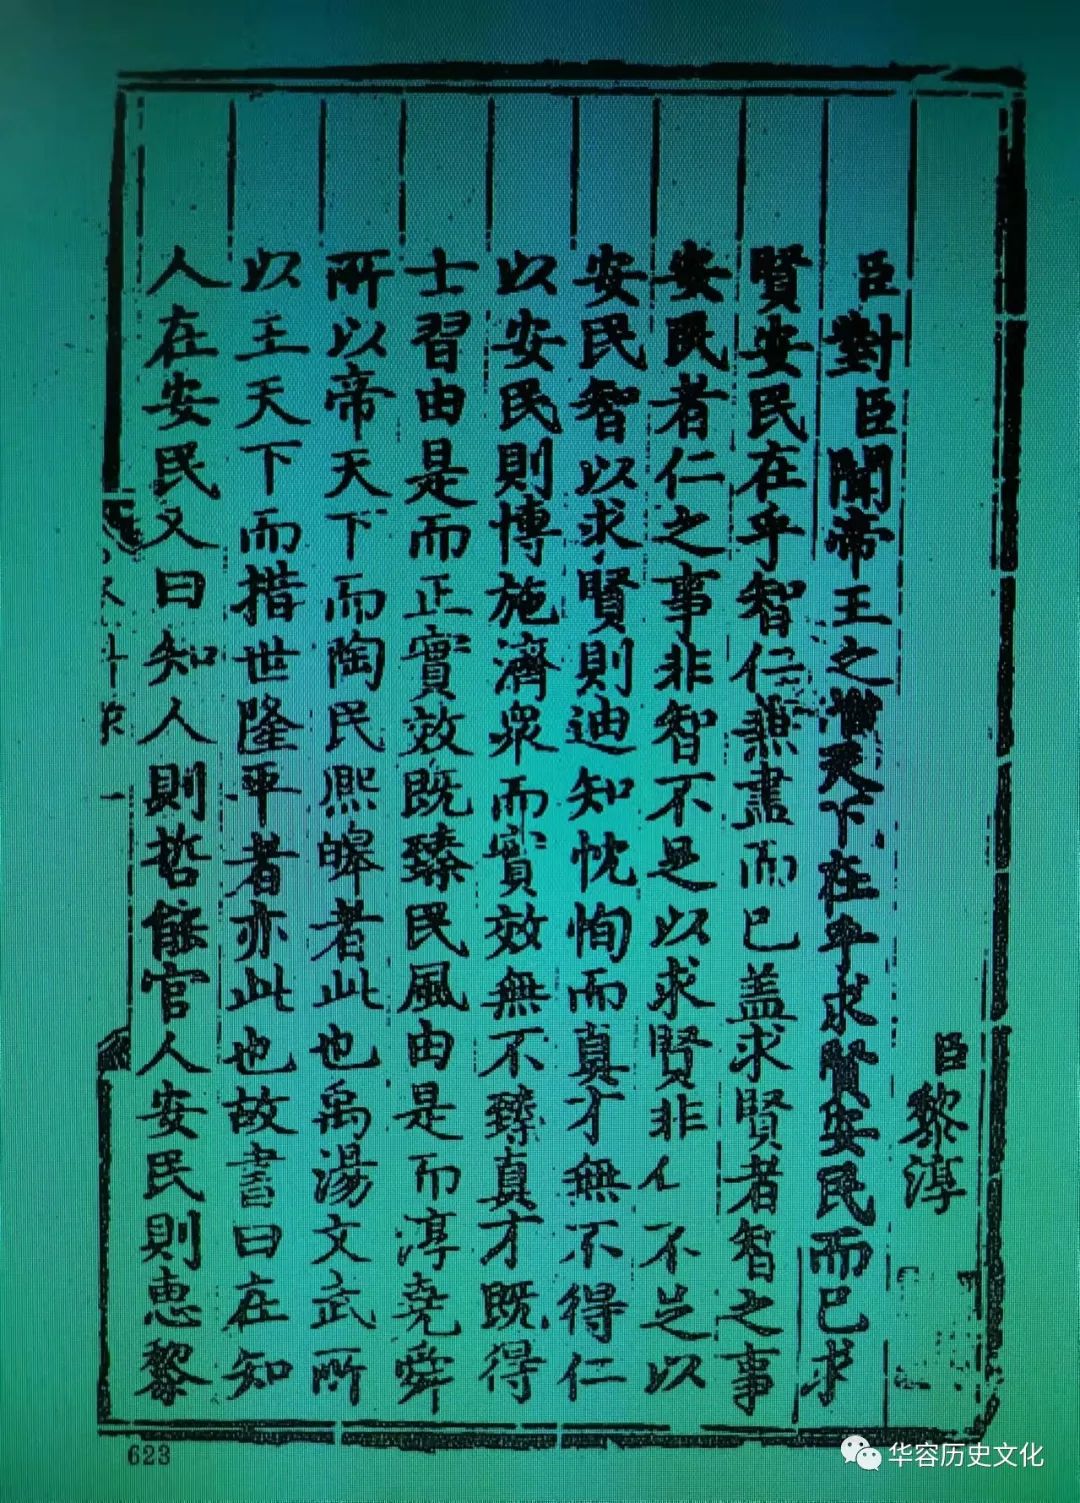 臣黎淳
臣對臣聞帝王之天下在乎求賢安民而已求
賢安民在乎智仁兼盡而已盖求賢者智之事
安民者仁之事非智不足以求賢非仁不足以
安民智以求賢則迪知忱恂而真才無不得仁
以安民則博施濟衆而實效無不臻真才既得
士習由是而正實效既臻民風由是而淳堯舜
所以帝天下而陶民熙皞者此也禹湯文武所
以王天下而措世隆平者亦此也故書曰在知
人在安民又曰知人則哲能官人安民則惠黎
一
623
华容历史文化